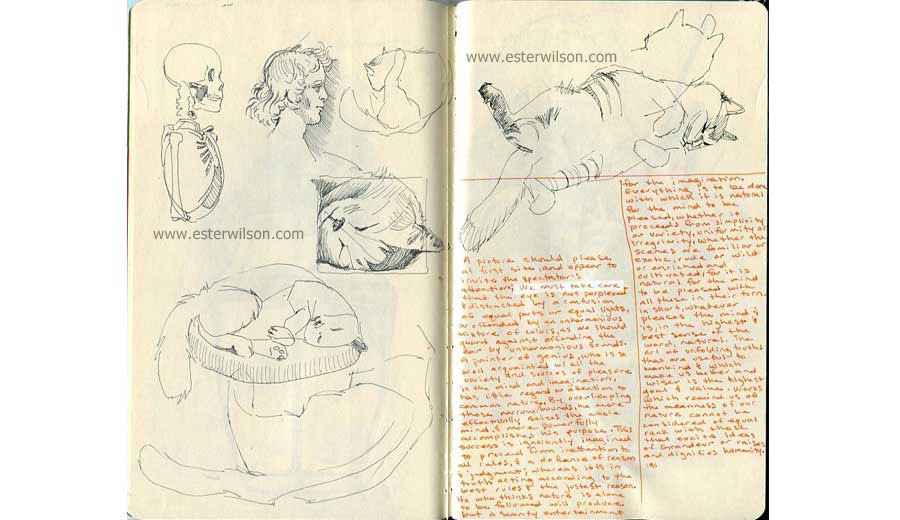 www.esterwilson.com
www.esterwilson.com
A picture should please
at first site, and appear to
invite the spectator's
attention; We must take care
that the eye is not perplexed
& distracted by a confusion
of equal parts or equal lights,
or offended by an unharmonious
mixture of colors, as we should
guard against offending the
ear by unharmonious sounds.
A painter of genius, who is so
well arquainted w/ all the
variety and sources of pleasure
in the mind and imagination,
has little regard or attention to
common nature. By overleaping
those narrow bounds, he more
effectually seizes the whole
mind & more powerfully
accomplishes his purpose. This
success is ignorantly imagined
to proceed from inattention to
all rules, & a defiance of reason
& judgment; whereas it is in
truth acting according to the
best rules & the justest reason.
He who thinks nature is alone
to be followed will produce
but a scanty entertainment
for the imagination.
Everything is to be done
with which it is natural
for the mind to be
pleased, whether it
proceeds from simplicity
or variety, uniformity or
irregularity; Whether the
scenes are familiar or
exotic, rude or wild
or enriched and
cultivated; for it is
natural for the mind
to be pleased with
all these in their turn.
In short, whatever
pleases the mind &
is, in the highest &
best sense of the
word, natural. The
art of unfolding truths
that are useful to
mankind & which
make us better and
wiser is the highest
rank & value. Works
which remind us of
the meanness of our
nature cannot be
considered of equal
rank with those
that excite ideas
of Grandeur or raises
and dignifies humanity.